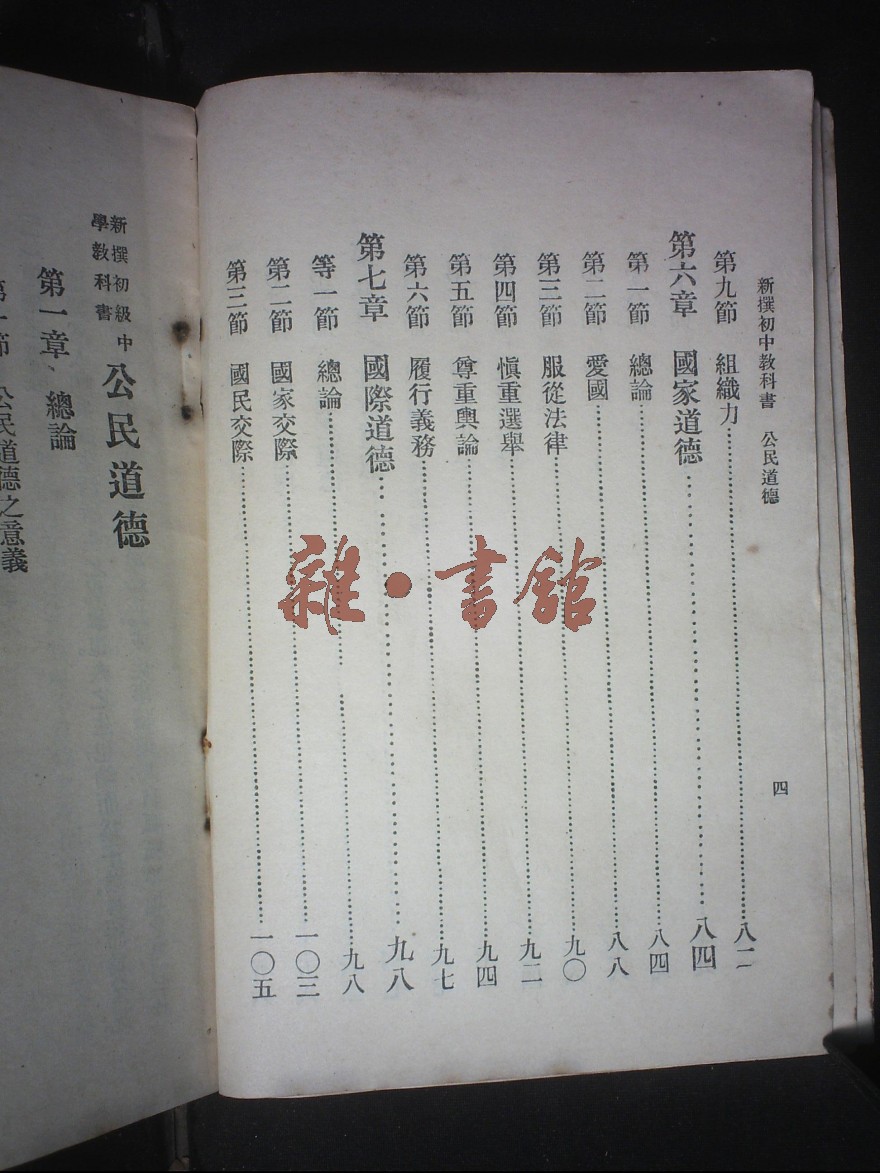 新撰初中教科書　公民道德
四
第九節　組織力……八二
第六章　國家道德……八四
第一節　總論……八四
第二節　愛國……八八
第三節　服從法律……九〇
第四節　愼重選舉……九二
第五節　尊重輿論……九四
第六節　履行義務……九七
第七章　國際道德……九八
等一節　總論……九八
第二節　國家交際……一〇三
第三節　國民交際……一〇五
新撰初級中
學教科書
公民道德
第一章、總論
第一節　公民道德之意義
雜·書館